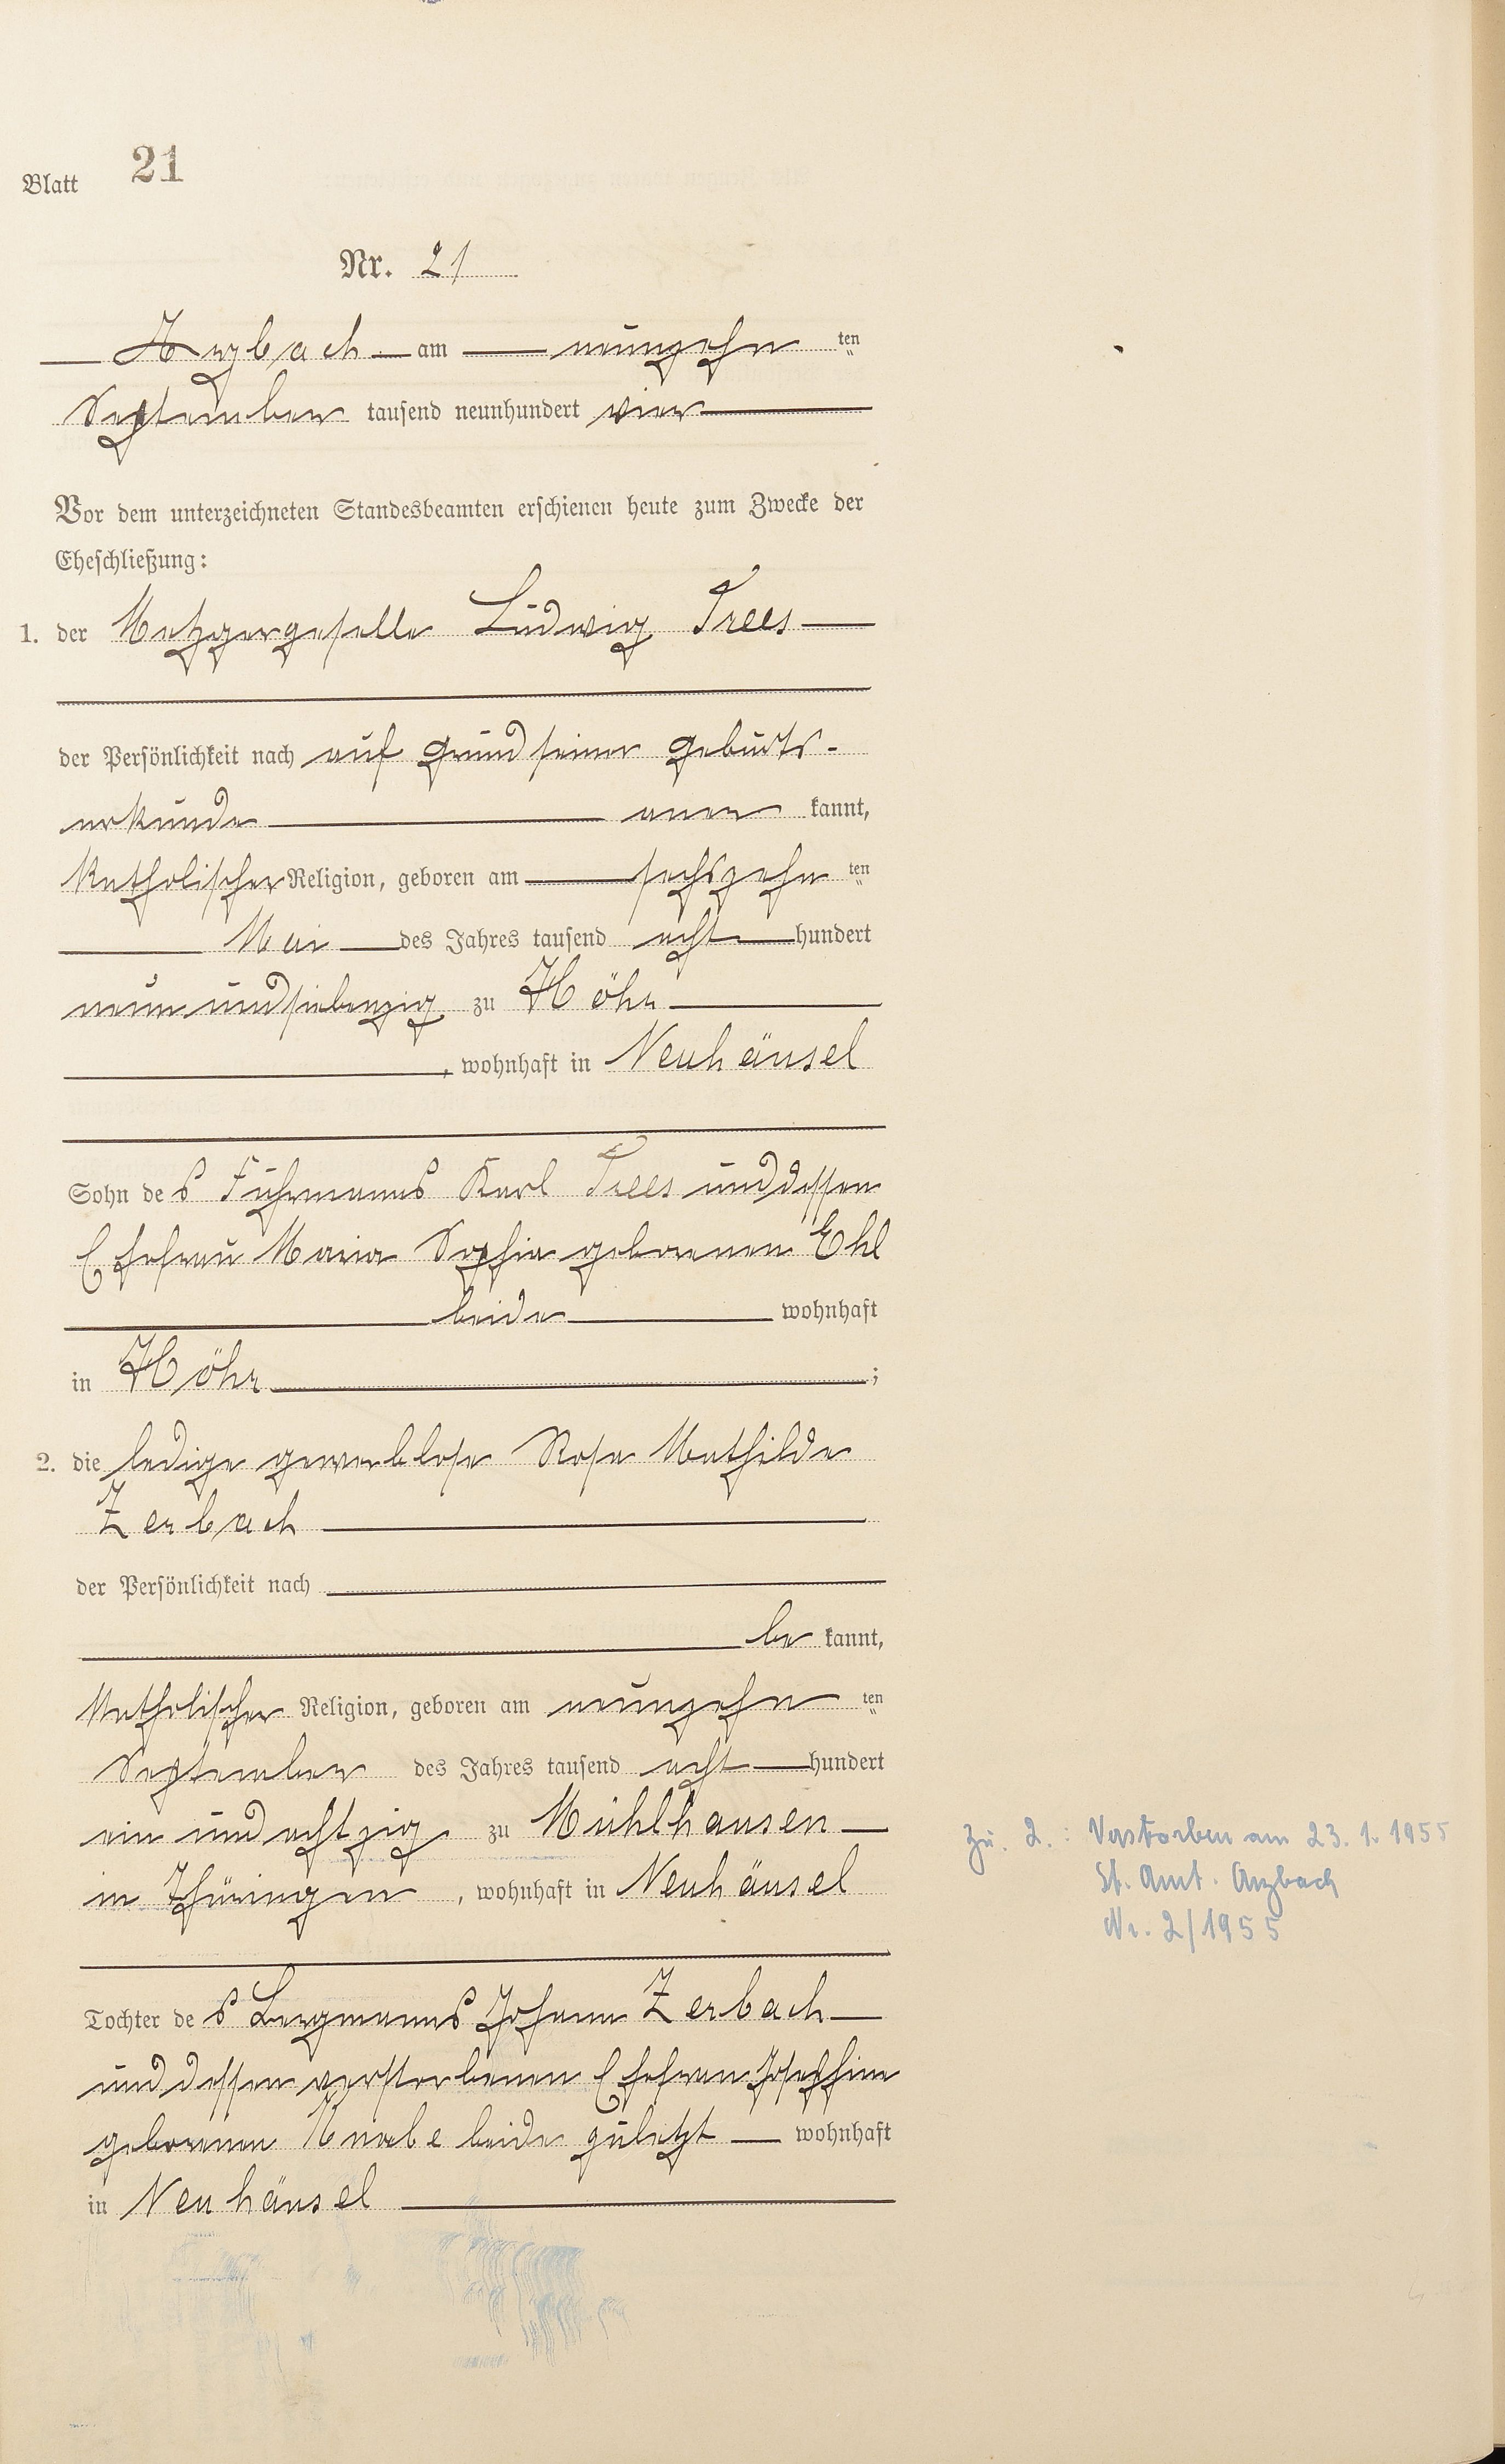 Blatt 21
Nr. 21
Arzbach am neunzehn ten
September tausend neunhundert vier
Vor dem unterzeichneten Standesbeamten erschienen heute zum Zwecke der
Eheschließung:
1. der Metzgergeselle Ludwig Trees
der Persönlichkeit nach auf Grund seiner Geburts-
urkunde aner kannt,
katholischer Religion, geboren am sechszehn ten
Mai des Jahres tausend acht hundert
neun und siebenzig zu Höhr
, wohnhaft in Neuhäusel
Sohn des Fuhrmanns Karl Trees und dessen
Ehefrau Maria Sophia geborenen Ehl
beide wohnhaft
in Höhr ;
2. die ledige gewerblose Rosa Mathilde
Zerbach
der Persönlichkeit nach
be kannt,
katholischer Religion, geboren am neunzehn ten
September des Jahres tausend acht hundert
ein und achtzig zu Mühlhausen
in Thüringen , wohnhaft in Neuhäusel
Zu. 2.: Verstorben am 23.1.1955
St. Amt. Arzbach
Nr. 2/1955
Tochter des Bergmanns Johann Zerbach
und dessen verstorbenen Ehefrau Josephine
geborenen Knabe beide zuletzt wohnhaft
in Neuhäusel